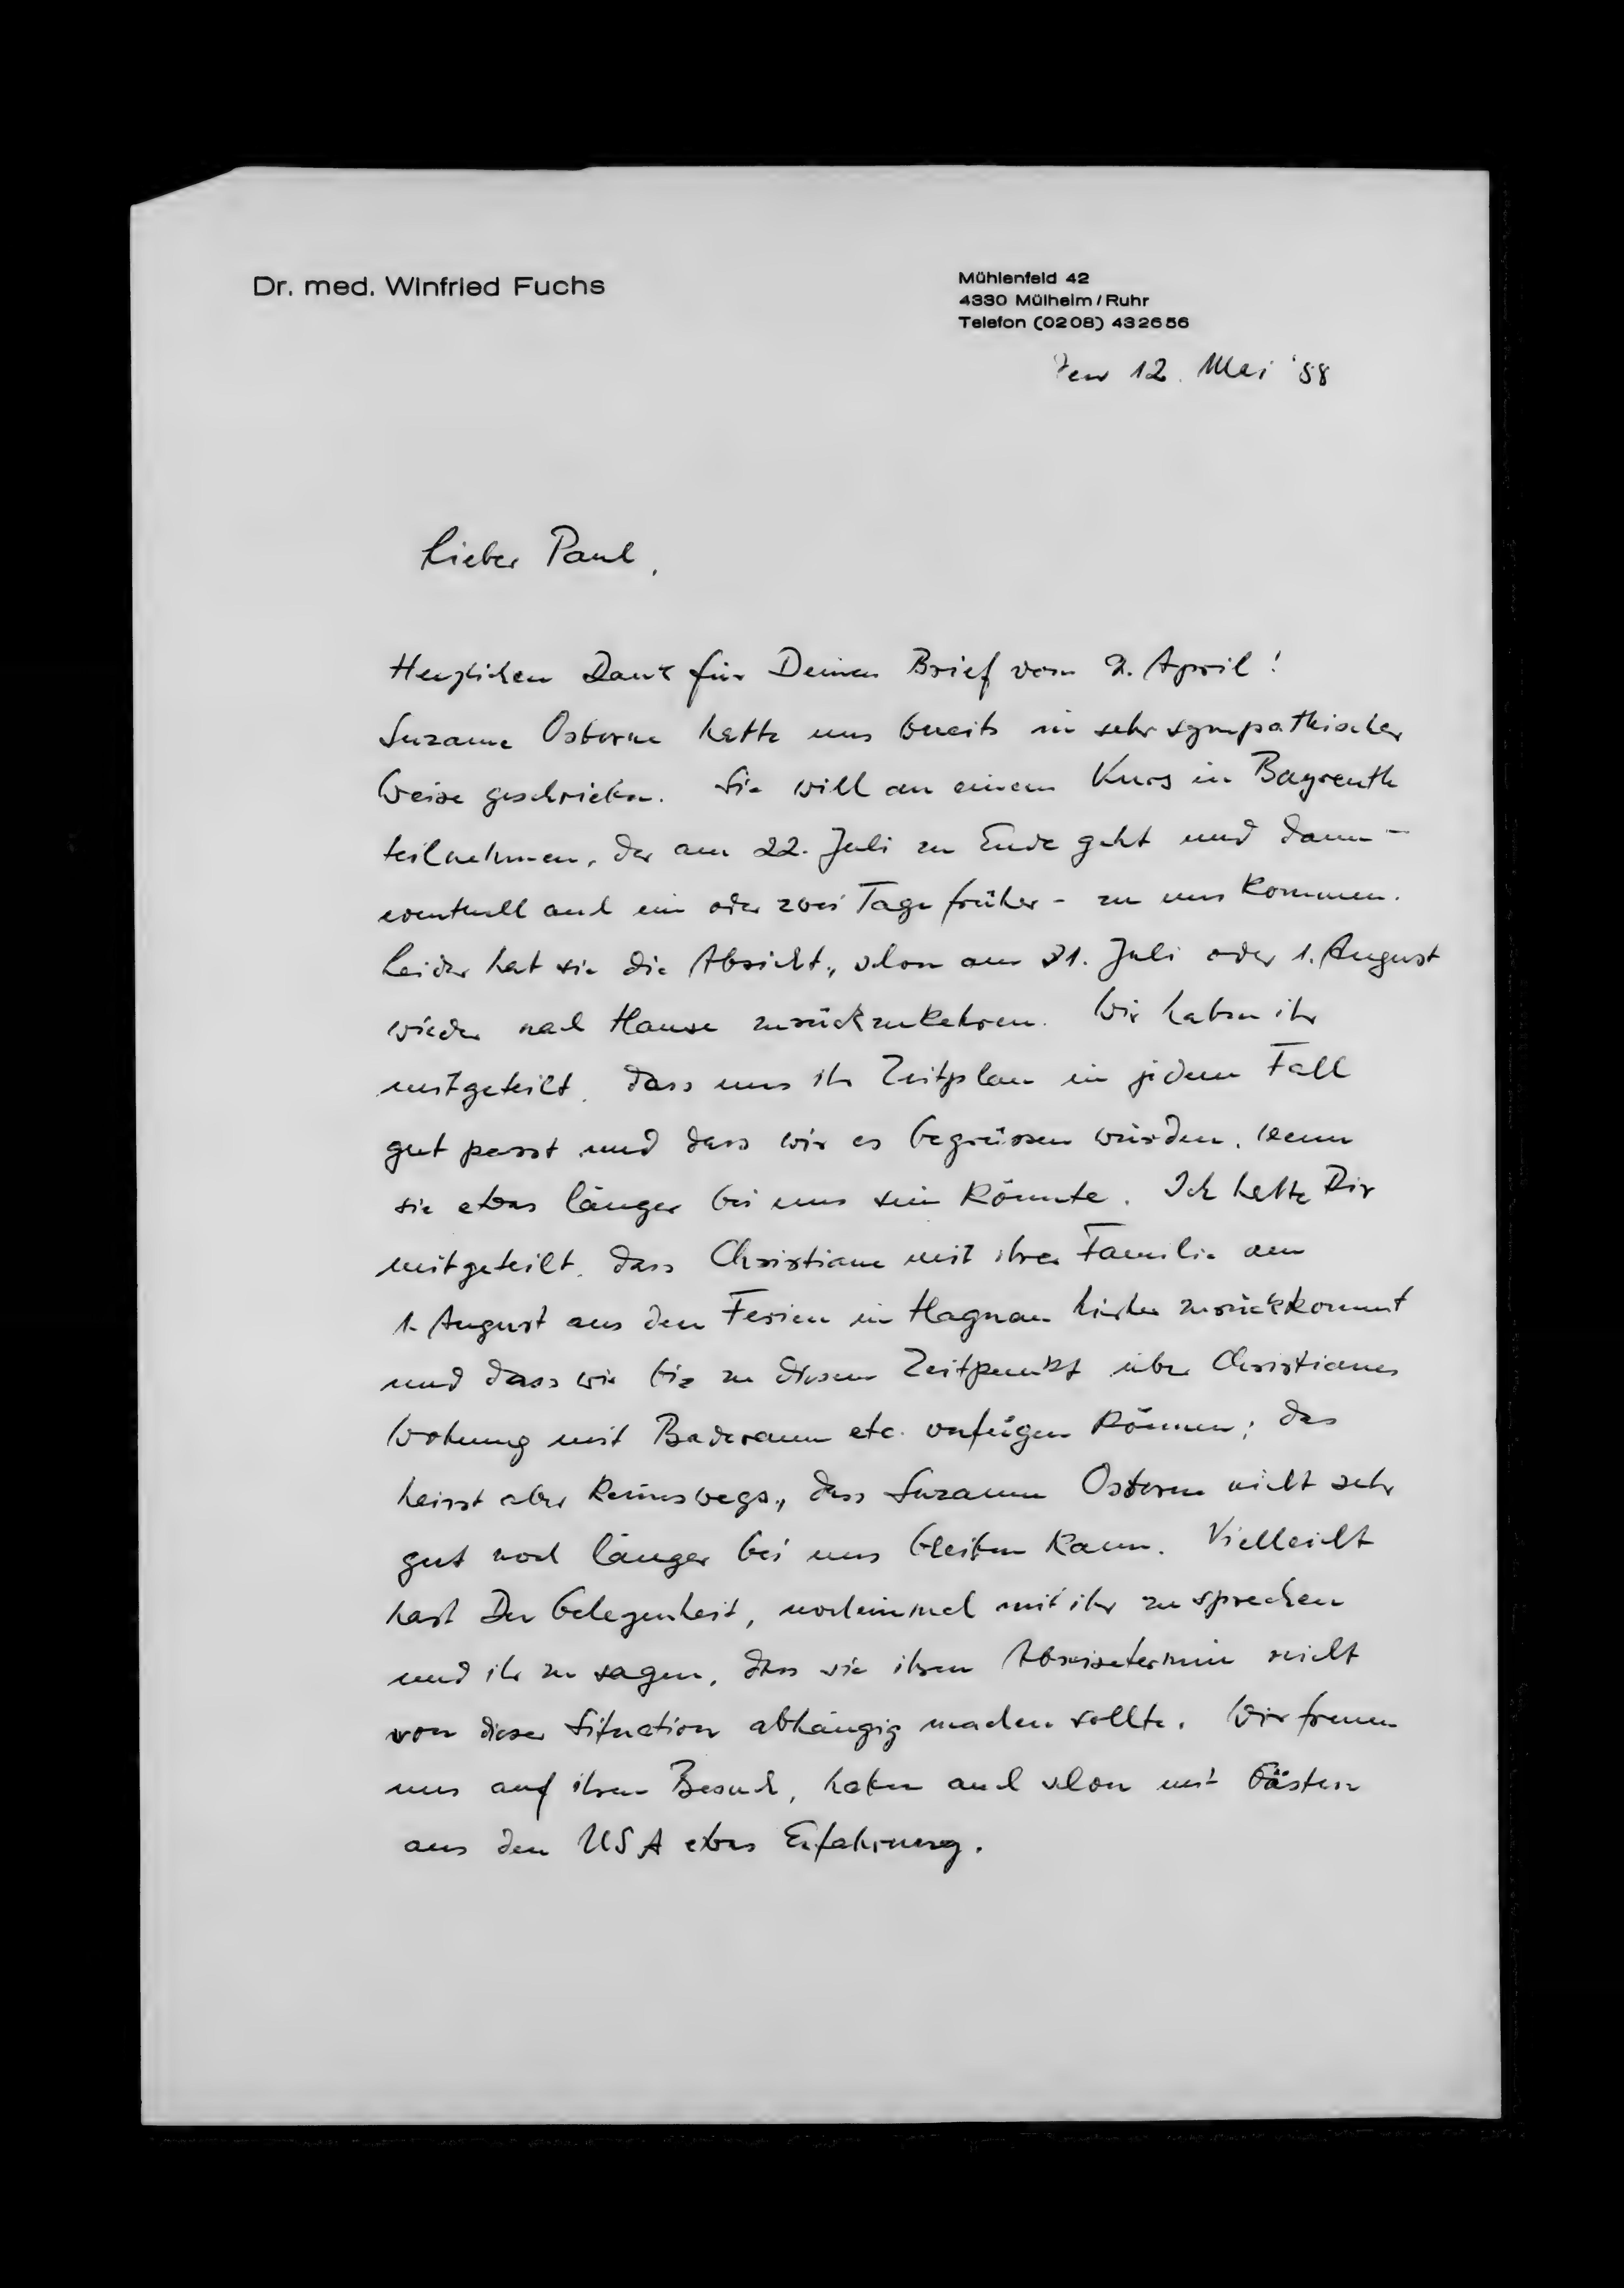 Dr. med. Winfried Fuchs
Mühlenfeld 42
4330 Mülheim/Ruhr
Telefon (0208) 432656
den 12. Mai '88
Lieber Paul,
Herzlichen Dank für Deinen Brief vom 2. April!
Suzanne Osborne hatte uns bereits in sehr sympathischer
Weise geschrieben. Sie will an einem Kurs in Bayreuth
teilnehmen, der am 22. Juli zu Ende geht und dann -
eventuell auch ein oder zwei Tage früher - zu uns kommen.
Leider hat sie die Absicht, schon am 31. Juli oder 1. August
wieder nach Hause zurückzukehren. Wir haben ihr
mitgeteilt, dass uns ihr Zeitplan in jedem Fall
gut passt und dass wir es begrüssen würden, wenn
sie etwas länger bei uns sein könnte. Ich hatte Dir
mitgeteilt, dass Christiane mit ihrer Familie am
1. August aus den Ferien in Hagnau hierher zurückkommt
und dass wir bis zu diesem Zeitpunkt über Christianes
Wohnung mit Baderaum etc. verfügen können; das
heisst aber keineswegs, dass Suzanne Osborne nicht sehr
gut noch länger bei uns bleiben kann. Vielleicht
hast Du Gelegenheit, nocheinmal mit ihr zu sprechen
und ihr zu sagen, dass sie ihren Abreisetermin nicht
von dieser Situation abhängig machen sollte. Wir freuen
uns auf ihren Besuch, haben auch schon mit Gästen
aus den USA etwas Erfahrung.